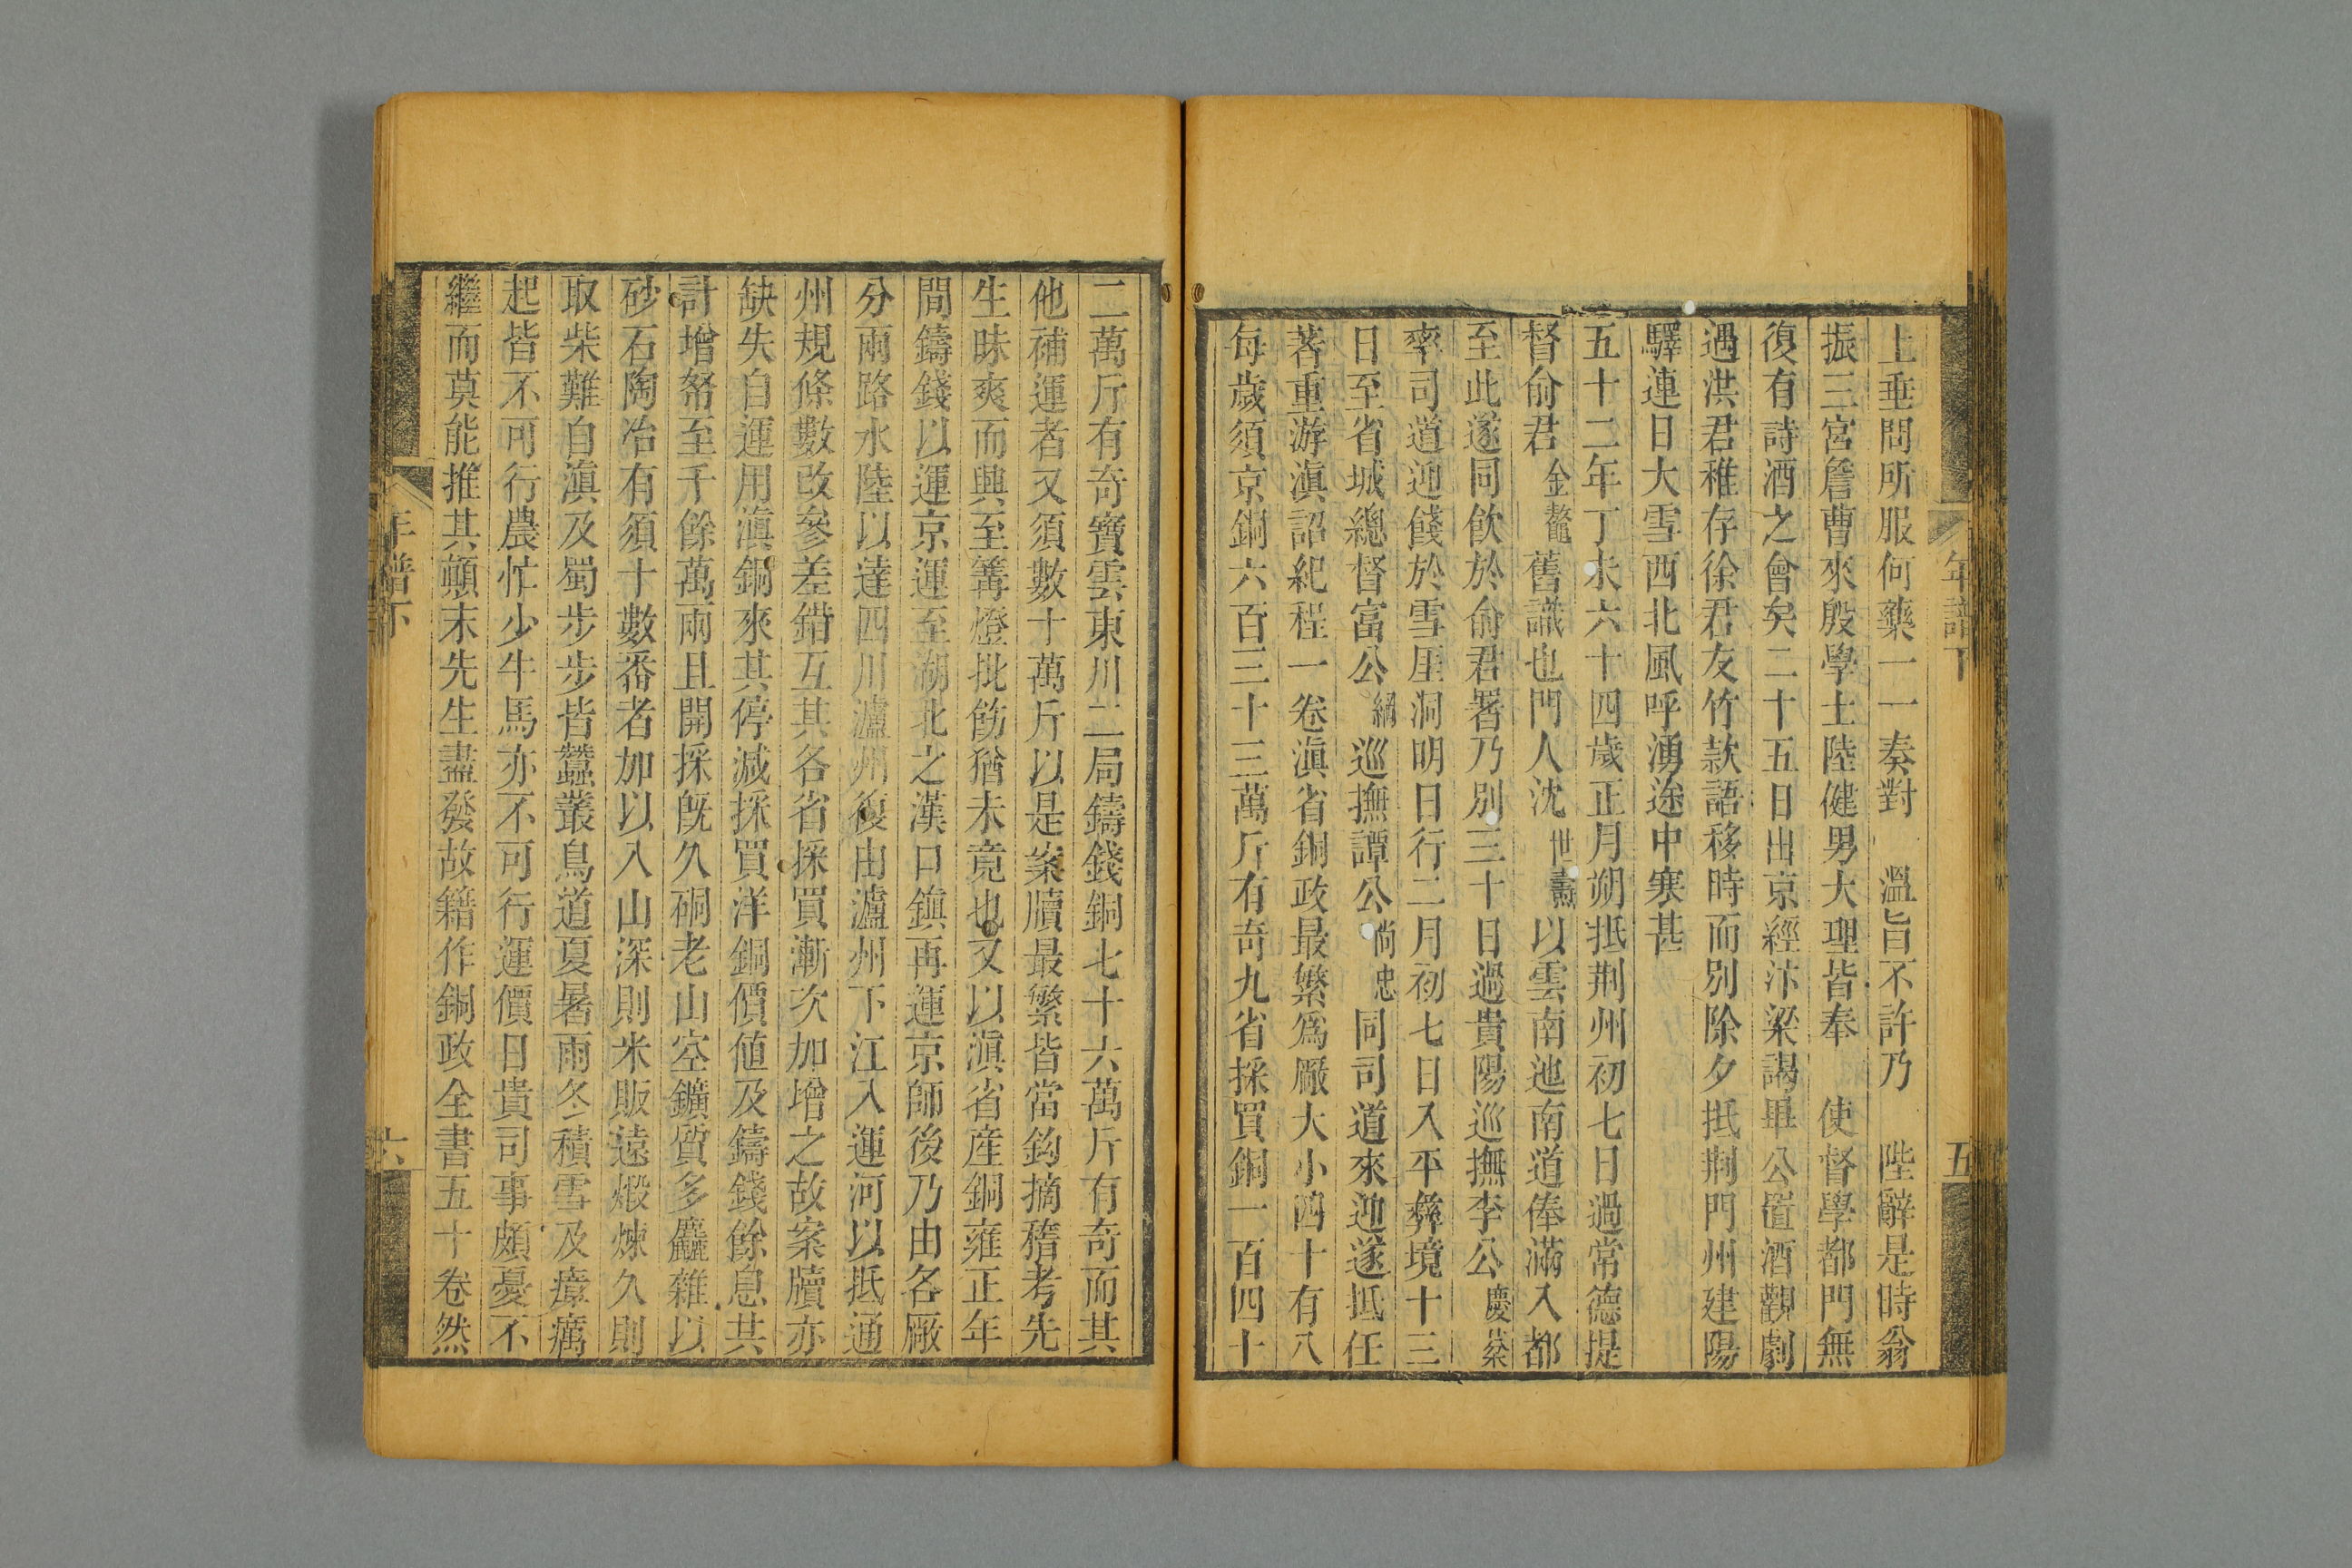 上垂問所服何藥一一奏對　溫旨不許乃　陛辭是時翁
振三宮詹曹來殷學士陸健男大理皆奉　使督學都門無
復有詩酒之會矣二十五日出京經汴梁謁畢公置酒觀劇
遇洪君稚存徐君友竹款語移時而別除夕抵荆門州建陽
驛連日大雪西北風呼湧途中寒甚
五十二年丁未六十四歲正月朔抵荆州初七日過常德提
督俞君金鰲舊識也門人沈世燾以雲南迤南道俸滿入都
至此遂同飲於俞君署乃別三十日過貴陽巡撫李公慶棻
率司道迎餞於雪厓洞明日行二月初七日入平彝境十三
日至省城總督富公綱巡撫譚公尚忠同司道來迎遂抵任
著重游滇詔紀程一卷滇省銅政最繁爲厰大小四十有八
每歲須京銅六百三十三萬斤有奇九省採買銅一百四十
年譜下
五
二萬斤有奇寶雲東川二局鑄錢銅七十六萬斤有奇而其
他補運者又須數十萬斤以是案牘最繁皆當鈎摘稽考先
生昧爽而興至篝燈批飭猶未竟也又以滇省産銅雍正年
間鑄錢以運京運至湖北之漢口鎮再運京師後乃由各厰
分兩路水陸以達四川瀘州復由瀘州下江入運河以抵通
州規條數改參差錯互其各省採買漸次加增之故案牘亦
缺失自運用滇銅來其停減採買洋銅價値及鑄錢餘息共
計增帑至千餘萬兩且開採旣久硐老山空鑛質多麤雜以
砂石陶冶有須十數番者加以入山深則米販遠煅煉久則
取柴難自滇及蜀步步皆蠶叢鳥道夏暑雨冬積雪及瘴癘
起皆不可行農忙少牛馬亦不可行運價日貴司事頗憂不
繼而莫能推其顛末先生盡發故籍作銅政全書五十卷然
年譜下
六